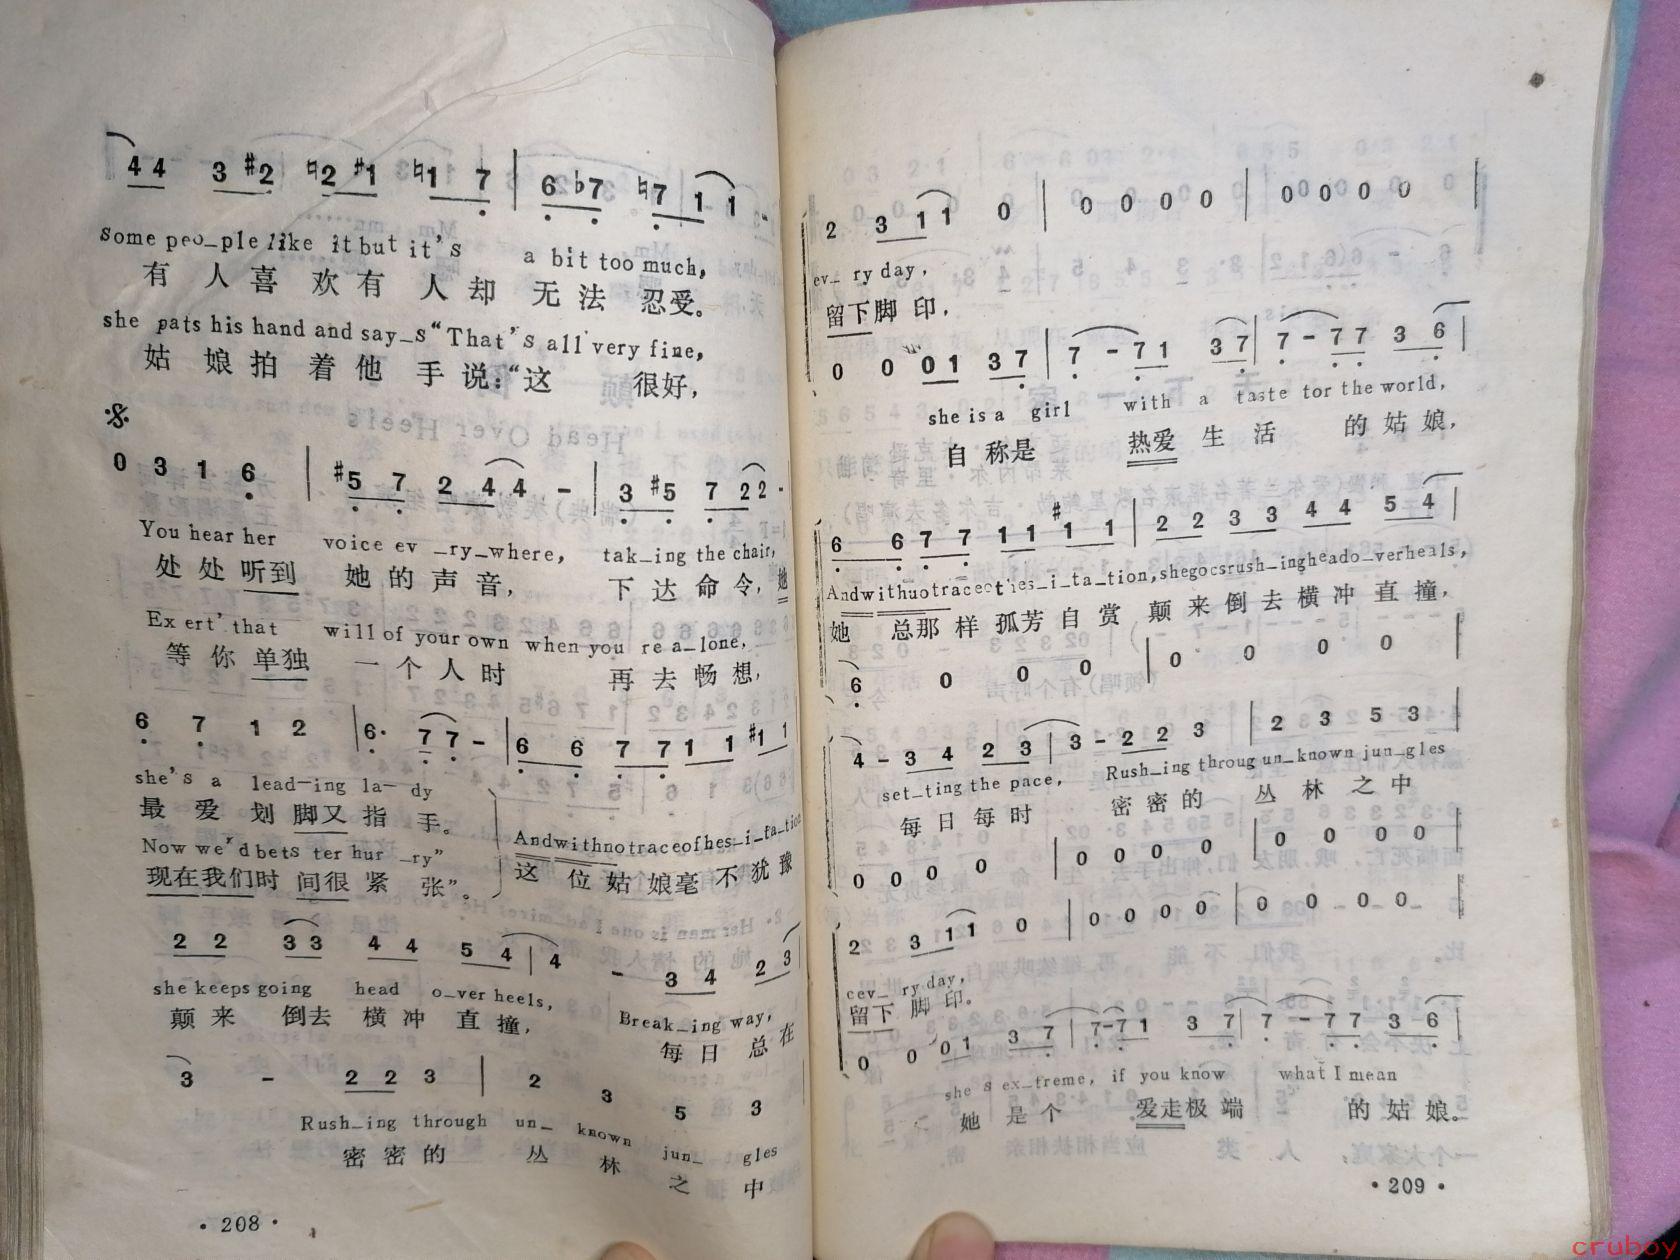 44 3 #2 ♮2 #1 ♮1 7 | 6 ♭7 ♮7 1 1 -
some peo_ple like it but it's a bit too much,
有人喜欢有人却无法忍受。
she pats his hand and say_s "That's all very fine,
姑娘拍着他手说:“这很好,
0 3 1 6 | #5 7 2 4 4 - | 3 #5 7 2 2 ·
You hear her voice ev_ry_where, tak_ing the chair,
处处听到她的声音, 下达命令,她
Ex ert' that will of your own when you re a_lone,
等你单独一个人时再去畅想,
6 7 1 2 | 6· 7 7 - | 6 6 7 7 1 1 #1 1
she's a lead-ing la- dy
最爱划脚又指手。
Now we'd bets ter hur_ry"
现在我们时间很紧张”。
Andwithnotraceofhes_i_ta_tion
这位姑娘毫不犹豫
2 2 3 3 4 4 5 4 | 4 - 3 4 2 3
she keeps going head o_ver heels, Break_ing way,
颠来倒去横冲直撞, 每日总在
3 - 2 2 3 | 2 3 5 3
Rush_ing through un_known jun_gles
密密的丛林之中
· 208 ·
2 3 1 1 0 | 0 0 0 0 | 0 0 0 0
ev_ ry day,
留下脚印,
0 0 01 37 | 7 - 71 37 | 7 - 77 3 6 |
she is a girl with a taste tor the world,
自称是热爱生活的姑娘,
6 6 7 7 1 1 #1 1 | 2 2 3 3 4 4 5 4 |
Andwithuotraceothes_i_ta_tion,shegocsrush_ingheado_verheals,
她总那样孤芳自赏颠来倒去横冲直撞,
6 0 0 0 | 0 0 0 0 |
4 - 3 4 2 3 | 3 - 2 2 3 | 2 3 5 3
set_ting the pace, Rush_ing throug un_known jun_gles
每日每时密密的丛林之中
0 0 0 0 | 0 0 0 0 | 0 0 0 0
2 3 1 1 0 | 0 0 0 0 | 0 0 0 0
cev_ ry day,
留下脚印。
0 0 01 3 7 | 7-71 3 7 | 7 - 77 3 6 |
she s ex_treme, if you know what I mean
她是个爱走极端的姑娘。
· 209 ·
cruboy